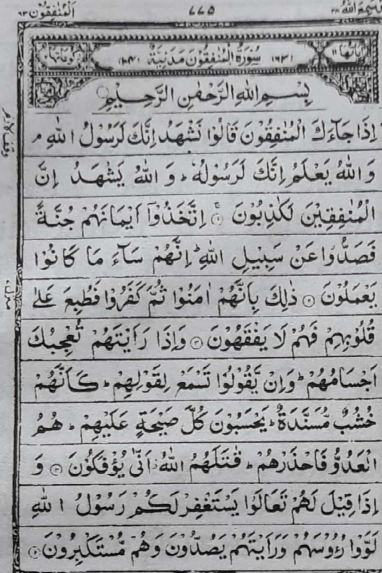 قد سمع الله ٢٨ ٧٧٥ المنفقون ٦٣
سُوْرَةُ الْمُنٰفِقُوْنَ مَدَنِيَّةٌ
بِسْمِ اللهِ الرَّحْمٰنِ الرَّحِيْمِ
اِذَا جَآءَكَ الْمُنٰفِقُوْنَ قَالُوْا نَشْهَدُ اِنَّكَ لَرَسُوْلُ اللهِ م
وَ اللهُ يَعْلَمُ اِنَّكَ لَرَسُوْلُهٗ ؕ وَ اللهُ يَشْهَدُ اِنَّ
الْمُنٰفِقِيْنَ لَكٰذِبُوْنَ ۚ اِتَّخَذُوْۤا اَيْمَانَهُمْ جُنَّةً
فَصَدُّوْا عَنْ سَبِيْلِ اللهِ ؕ اِنَّهُمْ سَآءَ مَا كَانُوْا
يَعْمَلُوْنَ ۝ ذٰلِكَ بِاَنَّهُمْ اٰمَنُوْا ثُمَّ كَفَرُوْا فَطُبِعَ عَلٰى
قُلُوْبِهِمْ فَهُمْ لَا يَفْقَهُوْنَ ۝ وَاِذَا رَاَيْتَهُمْ تُعْجِبُكَ
اَجْسَامُهُمْ ؕ وَاِنْ يَّقُوْلُوْا تَسْمَعْ لِقَوْلِهِمْ ؕ كَاَنَّهُمْ
خُشُبٌ مُّسَنَّدَةٌ ؕ يَحْسَبُوْنَ كُلَّ صَيْحَةٍ عَلَيْهِمْ ؕ هُمُ
الْعَدُوُّ فَاحْذَرْهُمْ ؕ قٰتَلَهُمُ اللهُ ؗ اَنّٰى يُؤْفَكُوْنَ ۝ وَ
اِذَا قِيْلَ لَهُمْ تَعَالَوْا يَسْتَغْفِرْ لَكُمْ رَسُوْلُ اللهِ
لَوَّوْا رُءُوْسَهُمْ وَرَاَيْتَهُمْ يَصُدُّوْنَ وَهُمْ مُّسْتَكْبِرُوْنَ ۝